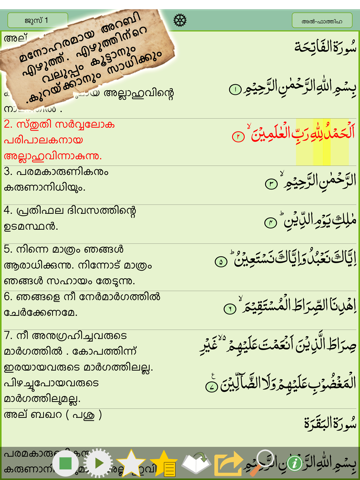 ജൂസ് 1
അൽ-ഫാത്തിഹ
മനോഹരമായ അറബി
എഴുത്ത് . എഴുത്തിന്റെ
വലുപ്പം കൂട്ടാനും
.കുറയ്ക്കാനും സാധിക്കും
അല്
سُورَةُ الْفَاتِحَة
അല്ലാഹുവിന്റെ
بِسْمِ اللهِ الرَّحْمٰنِ الرَّحِيْمِ ۝١
2. സ്തുതി സർവ്വലോക
പരിപാലകനായ
അല്ലാഹുവിന്നാകുന്നു.
اَلْحَمْدُ لِلّٰهِ رَبِّ الْعٰلَمِيْنَ ۙ ۝٢
3. പരമകാരുണികനും
കരുണാനിധിയും.
الرَّحْمٰنِ الرَّحِيْمِ ۙ ۝٣
4. പ്രതിഫല ദിവസത്തിന്റെ
ഉടമസ്ഥൻ.
مٰلِكِ يَوْمِ الدِّيْنِ ؕ ۝٤
5. നിന്നെ മാത്രം ഞങ്ങൾ
ആരാധിക്കുന്നു. നിന്നോട് മാത്രം
ഞങ്ങൾ സഹായം തേടുന്നു.
اِيَّاكَ نَعْبُدُ وَاِيَّاكَ نَسْتَعِيْنُ ؕ ۝٥
6. ഞങ്ങളെ നീ നേർമാർഗത്തിൽ
ചേർക്കേണമേ.
اِهْدِنَا الصِّرَاطَ الْمُسْتَقِيْمَ ۙ ۝٦
7. നീ അനുഗ്രഹിച്ചവരുടെ
മാർഗത്തിൽ . കോപത്തിന്ന്
ഇരയായവരുടെ മാർഗത്തിലല്ല.
പിഴച്ചുപോയവരുടെ
മാർഗത്തിലുമല്ല.
صِرَاطَ الَّذِيْنَ اَنْعَمْتَ عَلَيْهِمْ ۙ۬ غَيْرِ
الْمَغْضُوْبِ عَلَيْهِمْ وَلَا الضَّآلِّيْنَ ۝٧
അല് ബഖറ ( പശു )
سُورَةُ الْبَقَرَة
പരമകാരുണികനും
بِسْمِ اللهِ الرَّحْمٰنِ الرَّحِيْمِ